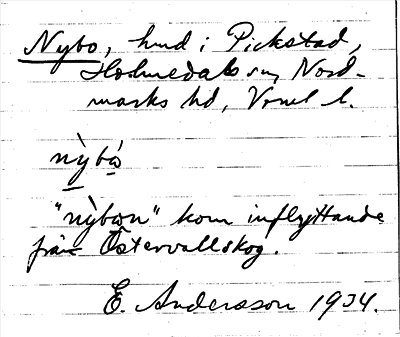 Nybo, hmd i Pickstad,
Holmedals sn, Nord-
marks hd, Vrml l.
nỳbó
"nỳbon" kom inflyttande
från Östervallskog.
E. Andersson 1934.